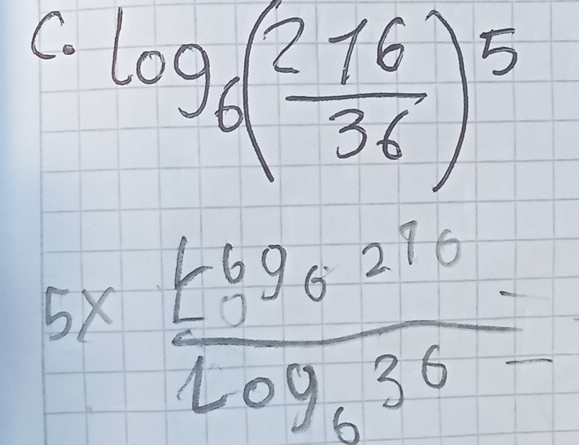 C. log₆(216/36)⁵
5x Log₆ 216 =
Log₆ 36